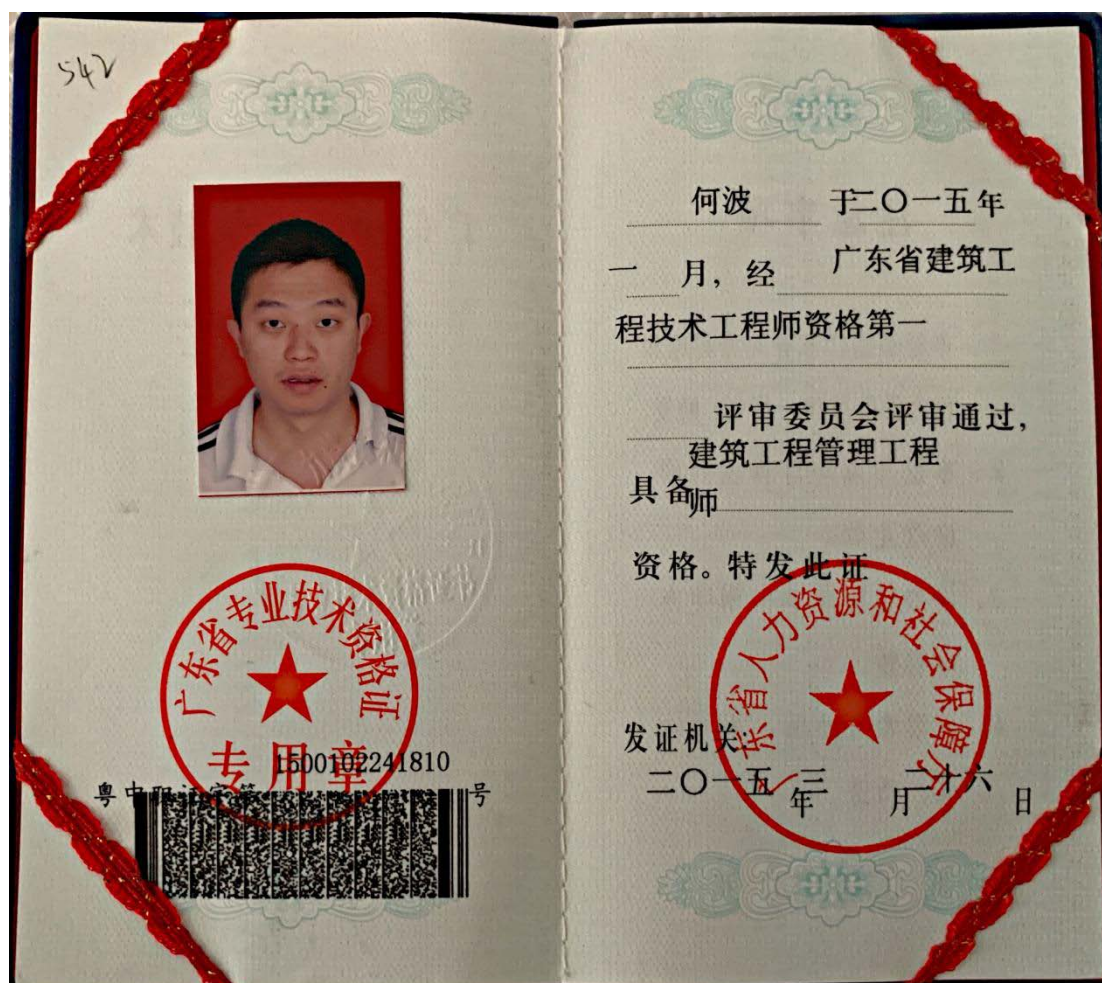 542
广东省专业技术资格证
专用章
1500102241810
粤中职证字第 号
何波 于二〇一五年
一 月，经 广东省建筑工
程技术工程师资格第一
评审委员会评审通过，
建筑工程管理工程
具备师
资格。特发此证
广东省人力资源和社会保障厅
发证机关：
二〇一五年三月二十六日